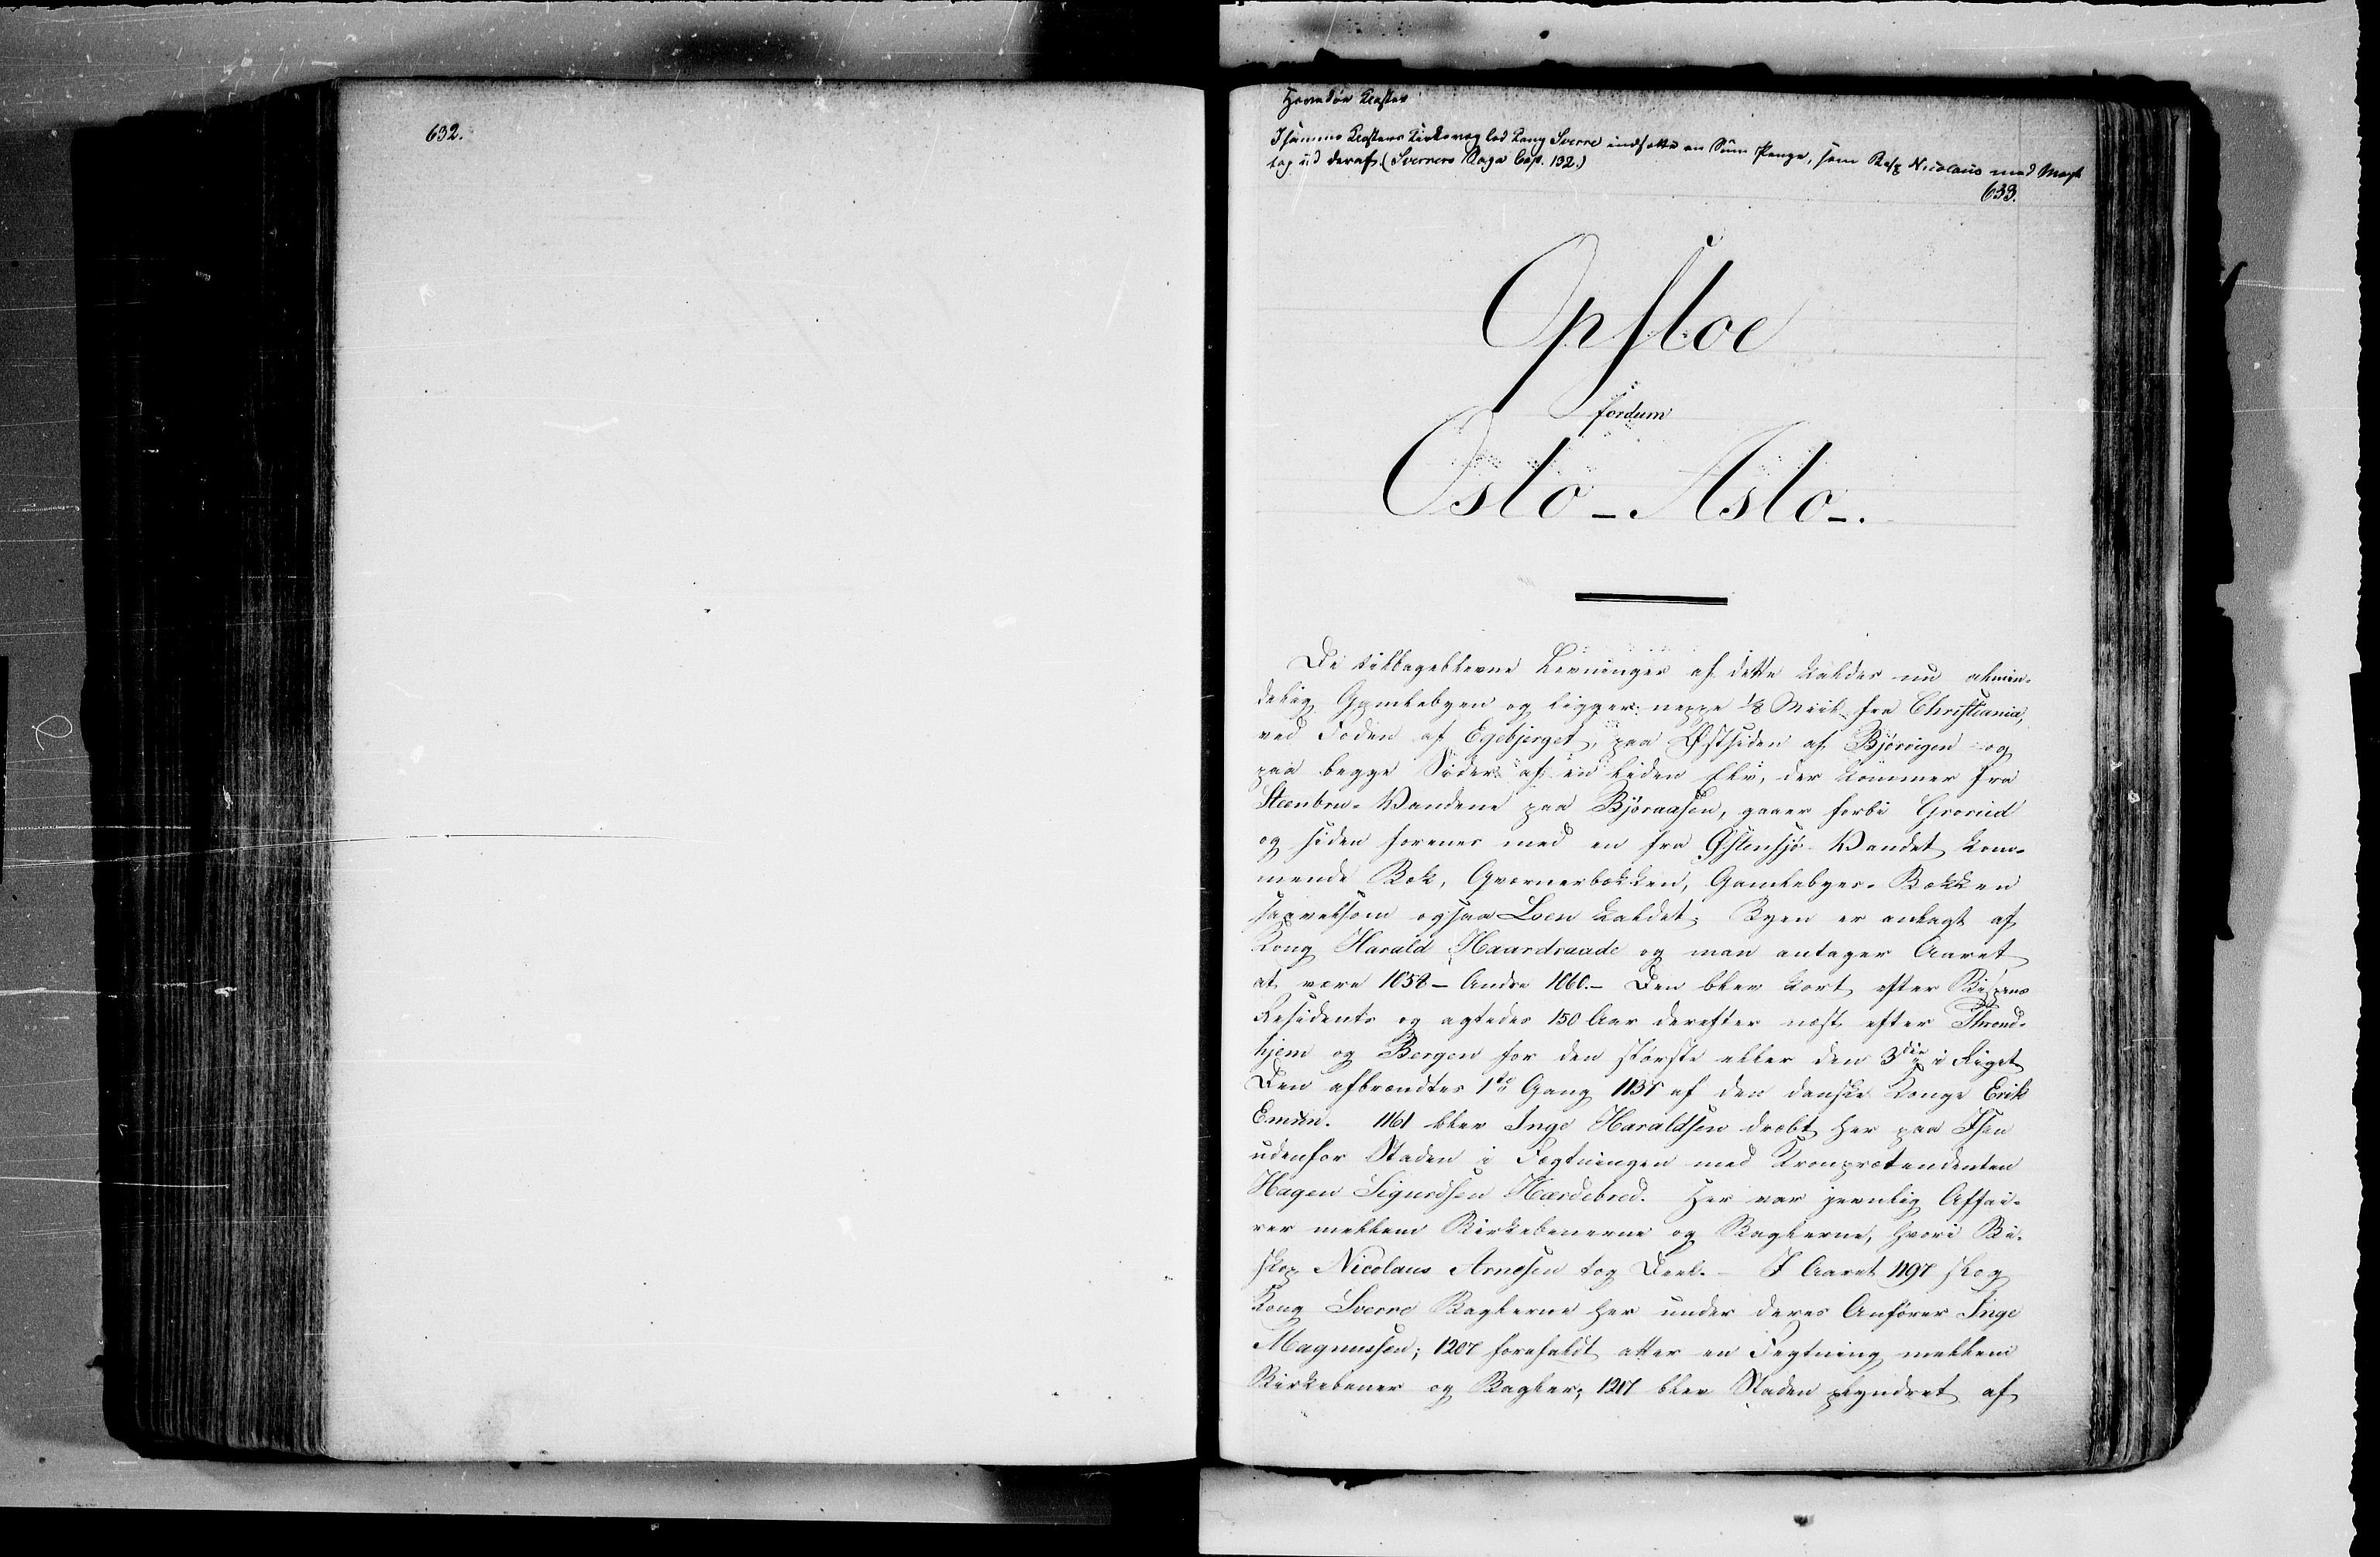 632.
Hovedøe Kloster
I samme Klosters Kirkevæg lod Kong Sverre indsætte en Sum Penge, som Bisp Nicolaus med Magt
tog ud deraf. (Sverrers Saga Cap. 132.)
633.
Opsloe
fordum
Oslo - Aslo -.
De tilbageblevne Levninger af dette kaldes nu almin-
delig Gamlebyen og ligger neppe 1/8 Miil fra Christiania,
ved Foden af Egebjerget, paa Østsiden af Bjørvigen og
paa begge Sider af en liden Elv, der kommer fra
Steenbru-Vandene paa Bjøraasen, gaaer forbi Grorud
og siden forenes med en fra Østensjø-Vandet kom-
mende Bæk, Qværnerbækken, Gamlebyes-Bækken
saavelsom ogsaa Loen kaldet. Byen er anlagt af
Kong Harald Haardraade og man antager Aaret
at være 1058 - Andre 1060. - Den blev kort efter Bispens
Residents og agtedes 150 Aar derefter næst efter Thrond-
hjem og Bergen for den største eller den 3die i Riget
Den afbrændtes 1te Gang 1137 af den danske Konge Erik
Emun. 1161 blev Inge Haraldsen dræbt her paa Isen
udenfor Staden i Fægtningen med Kronprætendenten
Hagen Sigurdsen Hærdebred. Her var jevnlig Affai-
rer mellem Birkebenerne og Baglerne, hvori Bi-
skop Nicolaus Arnesen tog Deel. - I Aaret 1197 slog
Kong Sverre Baglerne her under deres Anfører Inge
Magnussen; 1207 forefaldt atter en Fegtning mellem
Birkebener og Bagler; 1217 blev Staden plyndret af